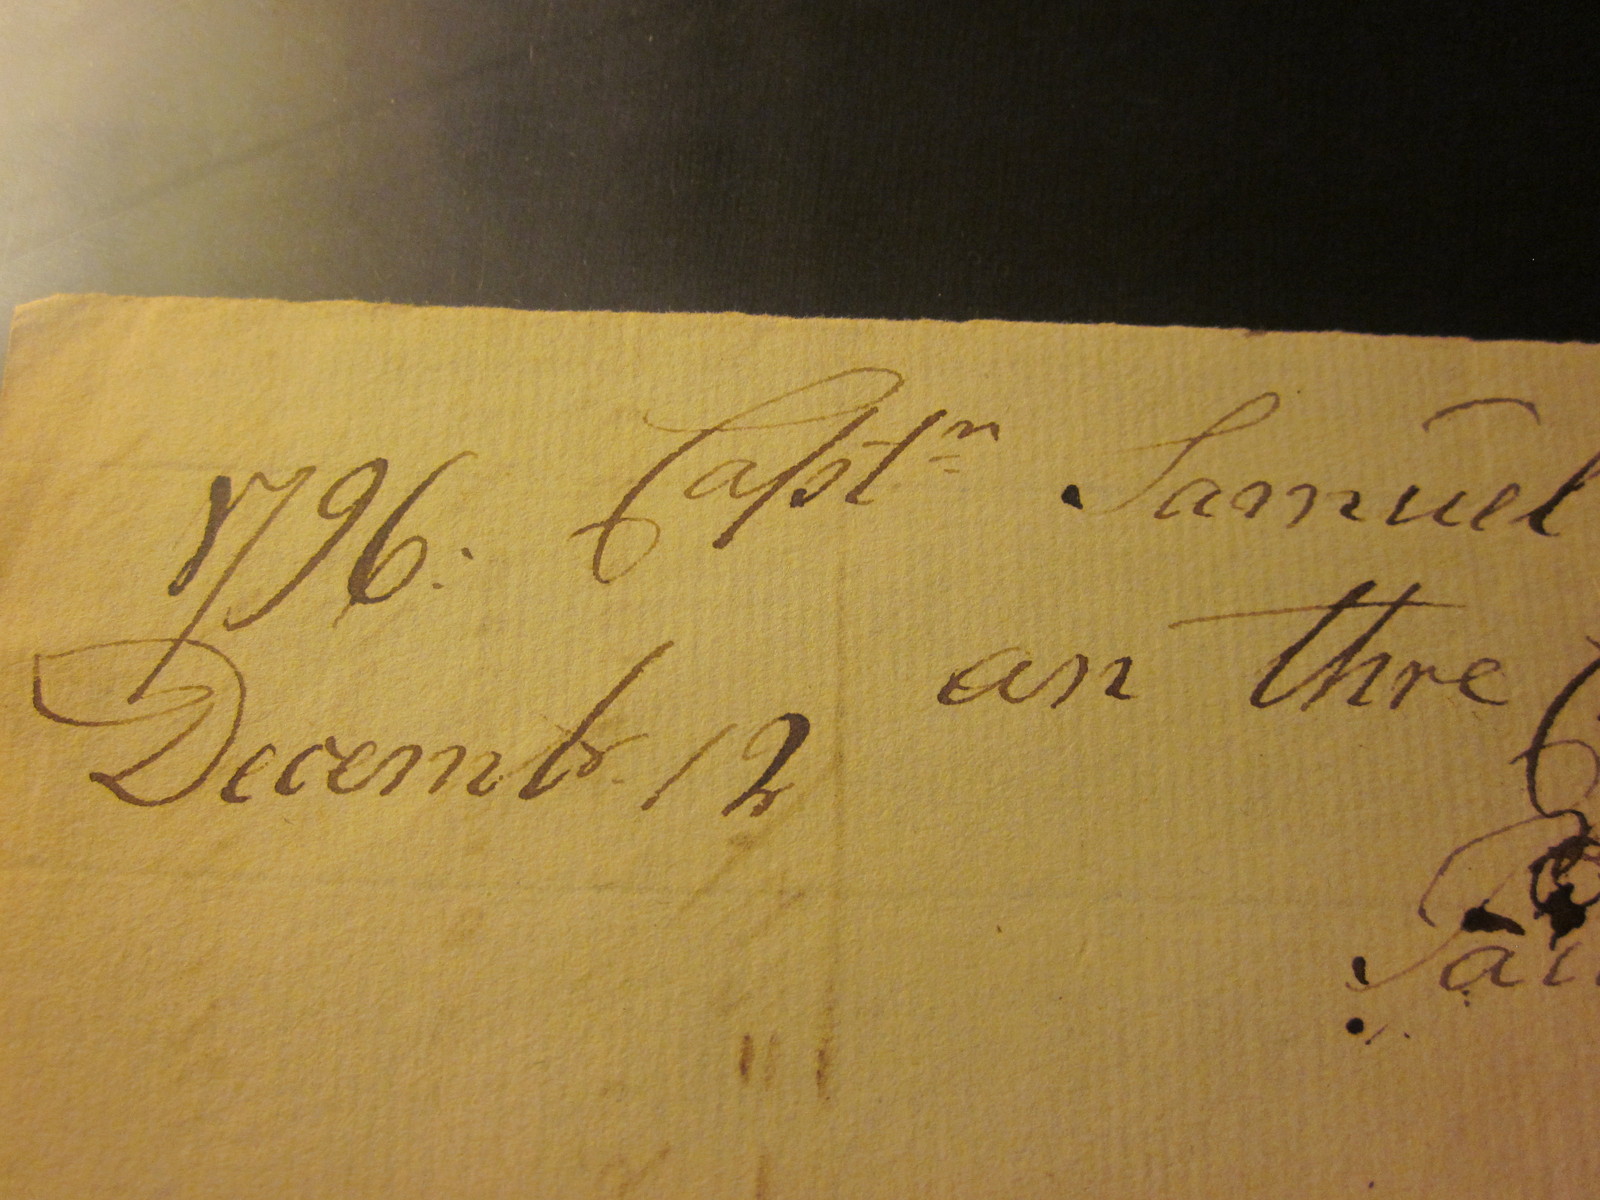 1796: Captn Samuel
Decembr. 12 an thre